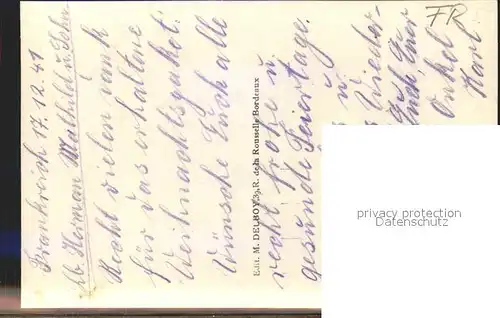 Frankreich 17.12.41
Lb. Heiman Mathild u. Sohn.
Recht vielen Dank
für das erhaltene
Weihnachtspaket.
Wünsche Euch alle
recht frohe u.
gesunde Feiertage.
u.
Wieder-
Euch, Euer
Onkel
Karl
Edit. M. DELBOY, 39, R. de la Rousselle Bordeaux
FR
privacy protection
www.ansichtskartenversand.com